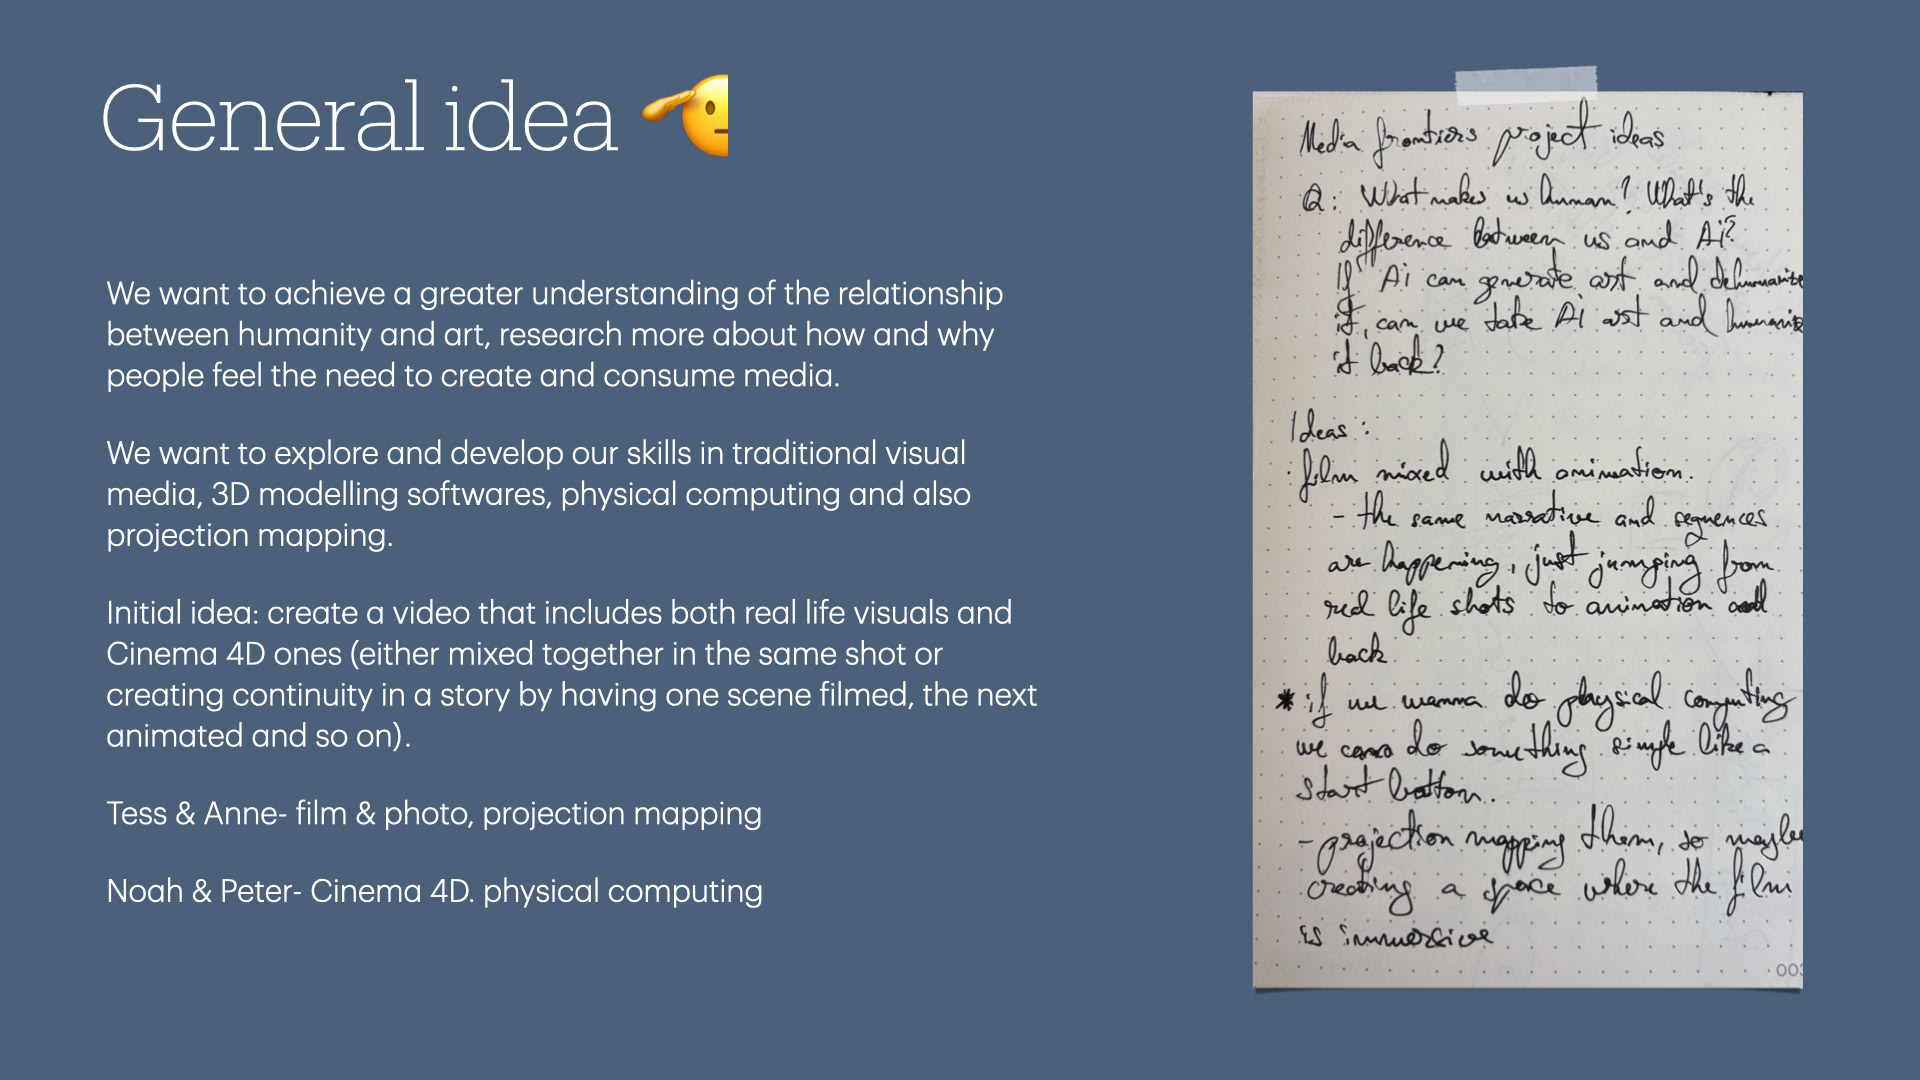 General idea
We want to achieve a greater understanding of the relationship
between humanity and art, research more about how and why
people feel the need to create and consume media.
We want to explore and develop our skills in traditional visual
media, 3D modelling softwares, physical computing and also
projection mapping.
Initial idea: create a video that includes both real life visuals and
Cinema 4D ones (either mixed together in the same shot or
creating continuity in a story by having one scene filmed, the next
animated and so on).
Tess & Anne- film & photo, projection mapping
Noah & Peter- Cinema 4D. physical computing
Media frontiers project ideas
Q: What makes us human? What's the
difference between us and Ai?
If Ai can generate art and dehumanize
it, can we take Ai art and humanize
it back?
Ideas:
· film mixed with animation.
- the same narrative and sequences
are happening, just jumping from
real life shots to animation and
back
* if we wanna do physical computing
we can do something simple like a
start button.
- projection mapping them, so maybe
creating a space where the film
is immersive
003